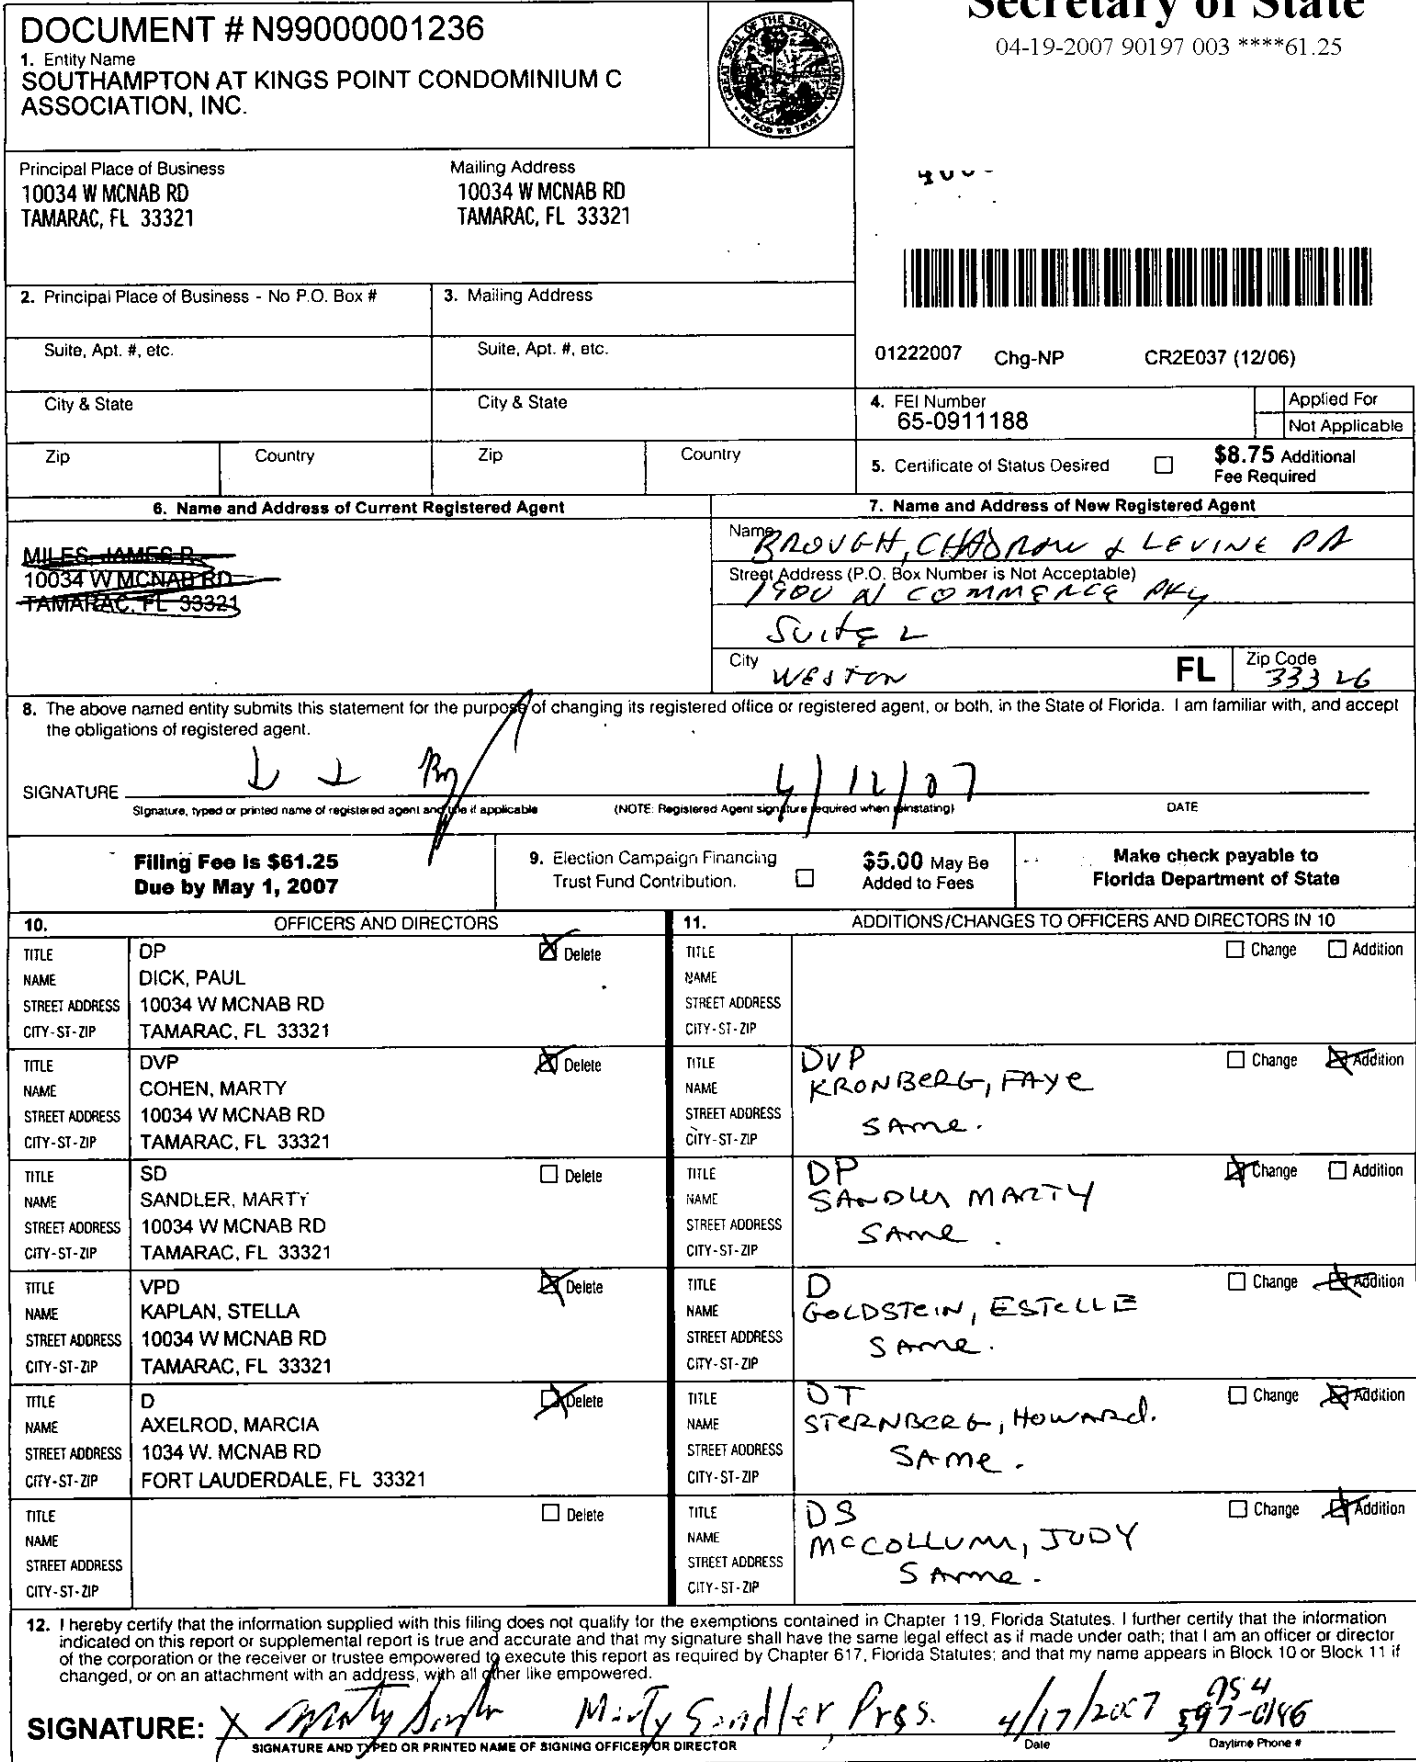 Secretary of State
04-19-2007 90197 003 ****61.25
DOCUMENT # N99000001236
1. Entity Name
SOUTHAMPTON AT KINGS POINT CONDOMINIUM C
ASSOCIATION, INC.
GREAT SEAL OF THE STATE OF FLORIDA
IN GOD WE TRUST
Principal Place of Business
10034 W MCNAB RD
TAMARAC, FL 33321
Mailing Address
10034 W MCNAB RD
TAMARAC, FL 33321
2. Principal Place of Business - No P.O. Box #
3. Mailing Address
Suite, Apt. #, etc.
Suite, Apt. #, etc.
City & State
City & State
Zip Country
Zip Country
01222007 Chg-NP CR2E037 (12/06)
4. FEI Number
65-0911188
Applied For
Not Applicable
5. Certificate of Status Desired
$8.75 Additional
Fee Required
6. Name and Address of Current Registered Agent
MILES, JAMES R.
10034 W MCNAB RD
TAMARAC, FL 33321
7. Name and Address of New Registered Agent
Name BROUGH, CHADROW & LEVINE PA
Street Address (P.O. Box Number is Not Acceptable)
1900 N COMMERCE PKY
SUITE 2
City WESTON FL Zip Code 33326
8. The above named entity submits this statement for the purpose of changing its registered office or registered agent, or both, in the State of Florida. I am familiar with, and accept
the obligations of registered agent.
SIGNATURE 4/12/07
Signature, typed or printed name of registered agent and title if applicable (NOTE: Registered Agent signature required when reinstating) DATE
Filing Fee is $61.25
Due by May 1, 2007
9. Election Campaign Financing
Trust Fund Contribution.
$5.00 May Be
Added to Fees
Make check payable to
Florida Department of State
10. OFFICERS AND DIRECTORS
11. ADDITIONS/CHANGES TO OFFICERS AND DIRECTORS IN 10
TITLE DP Delete
NAME DICK, PAUL
STREET ADDRESS 10034 W MCNAB RD
CITY-ST-ZIP TAMARAC, FL 33321
TITLE Change Addition
NAME
STREET ADDRESS
CITY-ST-ZIP
TITLE DVP Delete
NAME COHEN, MARTY
STREET ADDRESS 10034 W MCNAB RD
CITY-ST-ZIP TAMARAC, FL 33321
TITLE DVP Change Addition
NAME KRONBERG, FAYE
STREET ADDRESS SAME.
CITY-ST-ZIP
TITLE SD Delete
NAME SANDLER, MARTY
STREET ADDRESS 10034 W MCNAB RD
CITY-ST-ZIP TAMARAC, FL 33321
TITLE DP Change Addition
NAME SANDLER MARTY
STREET ADDRESS SAME.
CITY-ST-ZIP
TITLE VPD Delete
NAME KAPLAN, STELLA
STREET ADDRESS 10034 W MCNAB RD
CITY-ST-ZIP TAMARAC, FL 33321
TITLE D Change Addition
NAME GOLDSTEIN, ESTELLE
STREET ADDRESS SAME.
CITY-ST-ZIP
TITLE D Delete
NAME AXELROD, MARCIA
STREET ADDRESS 1034 W. MCNAB RD
CITY-ST-ZIP FORT LAUDERDALE, FL 33321
TITLE DT Change Addition
NAME STERNBERG, HOWARD.
STREET ADDRESS SAME.
CITY-ST-ZIP
TITLE Delete
NAME
STREET ADDRESS
CITY-ST-ZIP
TITLE DS Change Addition
NAME MCCOLLUM, JUDY
STREET ADDRESS SAME.
CITY-ST-ZIP
12. I hereby certify that the information supplied with this filing does not qualify for the exemptions contained in Chapter 119, Florida Statutes. I further certify that the information
indicated on this report or supplemental report is true and accurate and that my signature shall have the same legal effect as if made under oath; that I am an officer or director
of the corporation or the receiver or trustee empowered to execute this report as required by Chapter 617, Florida Statutes; and that my name appears in Block 10 or Block 11 if
changed, or on an attachment with an address, with all other like empowered.
SIGNATURE: X Marty Sandler Marty Sandler, Pres. 4/17/2007 954 597-0146
SIGNATURE AND TYPED OR PRINTED NAME OF SIGNING OFFICER OR DIRECTOR Date Daytime Phone #